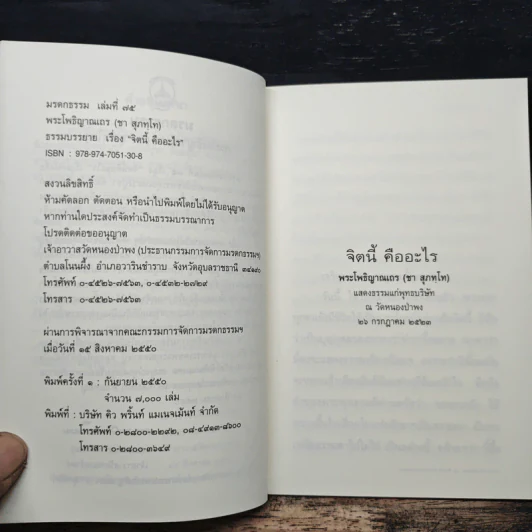 มรดกธรรม เล่มที่ ๗๕
พระโพธิญาณเถร (ชา สุภทฺโท)
ธรรมบรรยาย เรื่อง "จิตนี้ คืออะไร"
ISBN : 978-974-7051-30-8
สงวนลิขสิทธิ์
ห้ามคัดลอก ตัดตอน หรือนำไปพิมพ์โดยไม่ได้รับอนุญาต
หากท่านใดประสงค์จัดทำเป็นธรรมบรรณาการ
โปรดติดต่อขออนุญาต
เจ้าอาวาสวัดหนองป่าพง (ประธานกรรมการจัดการมรดกธรรมฯ)
ตำบลโนนผึ้ง อำเภอวารินชำราบ จังหวัดอุบลราชธานี ๓๔๑๙๐
โทรศัพท์ ๐-๔๕๒๖-๗๕๖๓, ๐-๔๕๓๒-๒๗๒๙
โทรสาร ๐-๔๕๒๖-๗๕๖๓
ผ่านการพิจารณาจากคณะกรรมการจัดการมรดกธรรมฯ
เมื่อวันที่ ๑๕ สิงหาคม ๒๕๕๐
พิมพ์ครั้งที่ ๑ : กันยายน ๒๕๕๐
จำนวน ๗,๐๐๐ เล่ม
พิมพ์ที่ : บริษัท คิว พริ้นท์ แมเนจเม้นท์ จำกัด
โทรศัพท์ ๐-๒๘๐๐-๒๒๙๒, ๐๘-๔๙๑๓-๘๖๐๐
โทรสาร ๐-๒๘๐๐-๓๖๔๙
จิตนี้ คืออะไร
พระโพธิญาณเถร (ชา สุภทฺโท)
แสดงธรรมแก่พุทธบริษัท
ณ วัดหนองป่าพง
๒๖ กรกฎาคม ๒๕๒๓